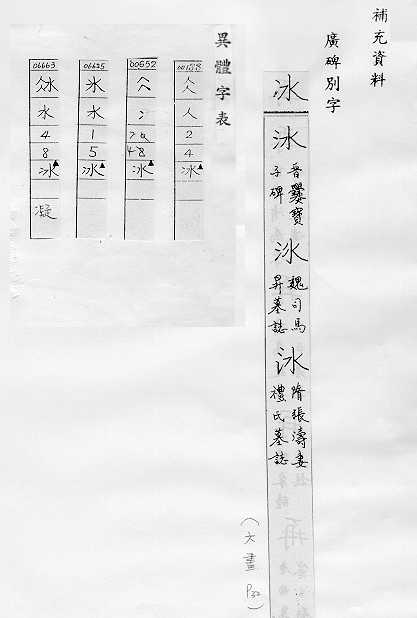 補充資料
廣碑別字
冰
冰 晉爨寶子碑
冰 魏司馬昇墓誌
冰 隋張濤妻禮氏墓誌
(六畫 P32)
異體字表
人 2 4 冰▲
00652 冫 冰▲
06625 氷 水 1 5 冰▲
06663 水 4 8 冰▲ 凝